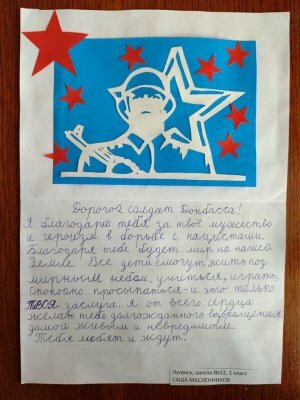 Дорогой солдат Донбасса!
Я благодарю тебя за твоё мужество
и героизм в борьбе с нацистами.
Благодаря тебе будет мир на нашей
Земле. Все дети смогут жить под
мирным небом, учиться, играть,
спокойно просыпаться и это только
ТВОЯ заслуга. Я от всего сердца
желаю тебе долгожданного возвращения
домой живым и невредимым.
Тебя любят и ждут!
Луганск, школа №32, 1 класс
САША МАСЛЕННИКОВ